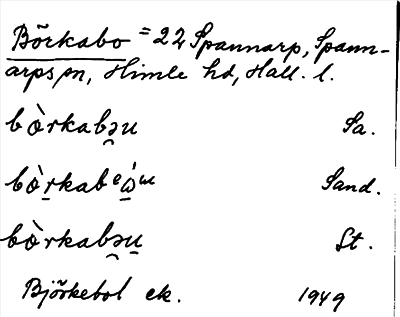 Bõrkabo = 22 Spannarp, Spann-
arps sn, Himle hd, Hall. l.
bòrkabə̯u Sa.
bò̠rkabᵉó̠ᵚ Sand.
bòrkabə̯u̠ St.
Bjõrkebol ek. 1949